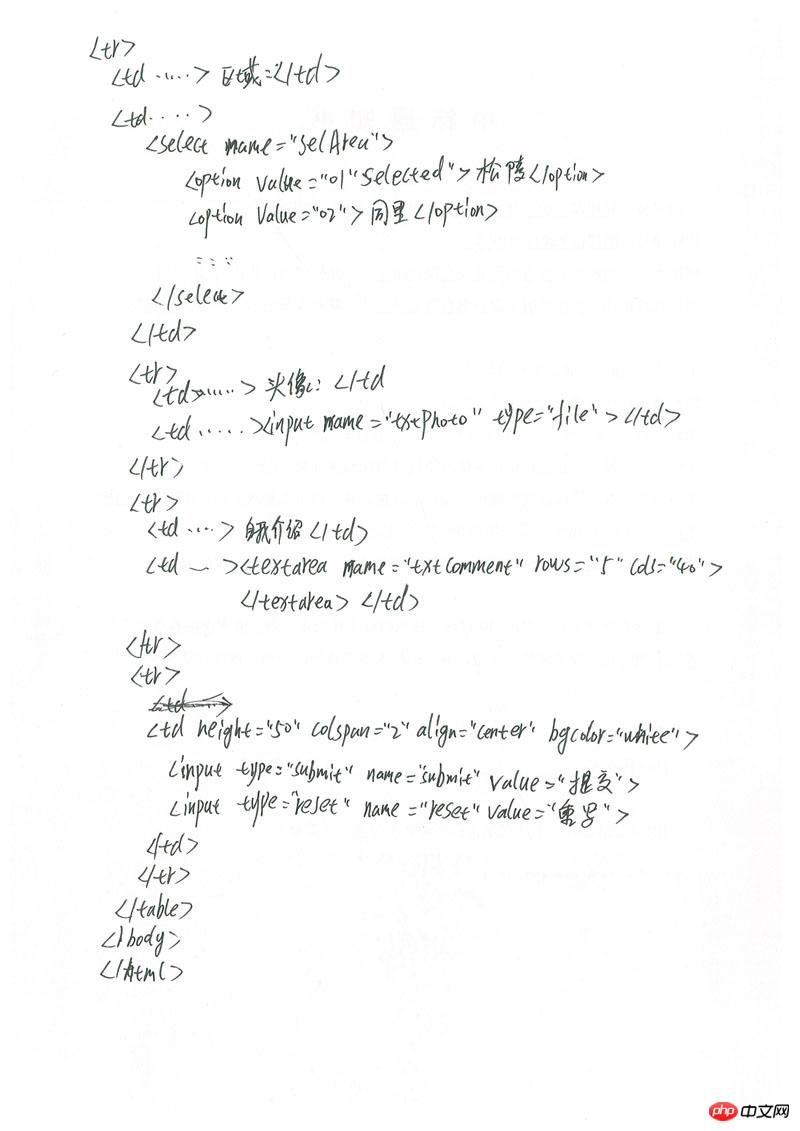 <tr>
<td ......> 区域:</td>
<td ....>
<select name="selArea">
<option value="01" selected"> 松陵</option>
<option value="02"> 同里</option>
......
</select>
</td>
<tr>
<td>......> 头像: </td
<td ......><input name="txtphoto" type="file"></td>
</tr>
<tr>
<td ....> 自我介绍</td>
<td ...><textarea name="txtComment" rows="5" cols="40">
</textarea> </td>
</tr>
<tr>
<td height="50" colspan="2" align="center" bgcolor="white">
<input type="submit" name="submit" value="提交">
<input type="reset" name="reset" value="重写">
</td>
</tr>
</table>
</body>
</html>
php 中文网